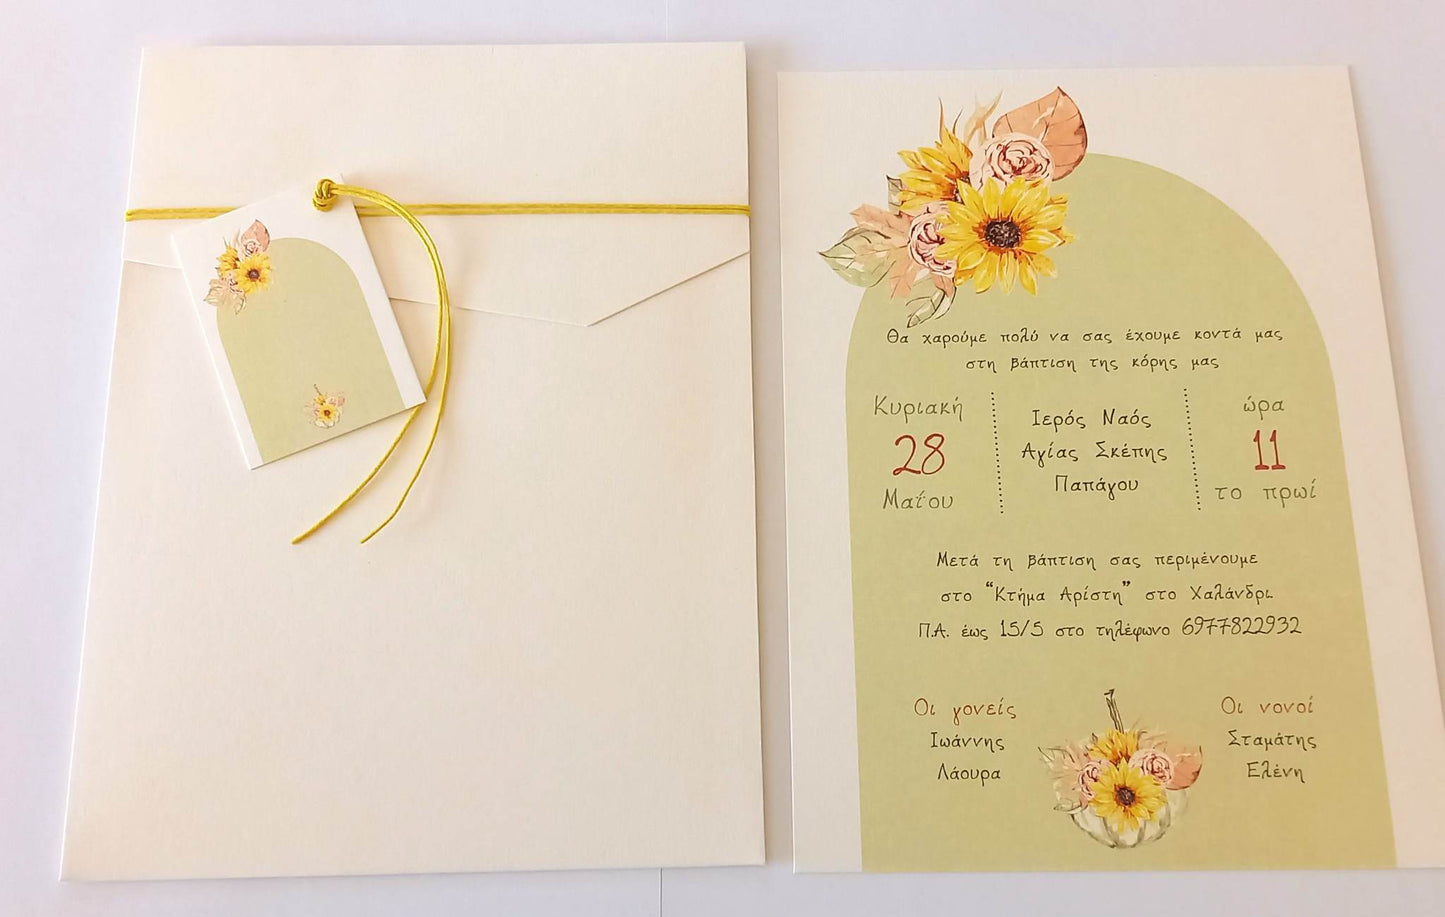 Θα χαρούμε πολύ να σας έχουμε κοντά μας
στη βάπτιση της κόρης μας
Κυριακή
28
Μαΐου
Ιερός Ναός
Αγίας Σκέπης
Παπάγου
ώρα
11
το πρωί
Μετά τη βάπτιση σας περιμένουμε
στο “Κτήμα Αρίστη” στο Χαλάνδρι.
Π.Α. έως 15/5 στο τηλέφωνο 6977822932
Οι γονείς
Ιωάννης
Λάουρα
Οι νονοί
Σταμάτης
Ελένη